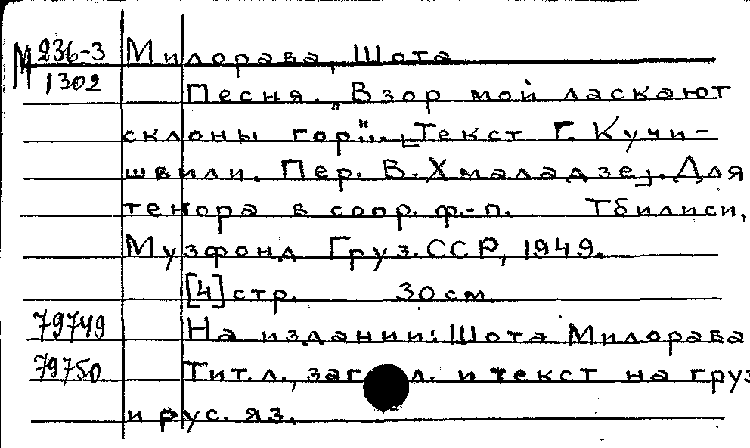 М 236-3 Милорава, Шота
1302
Песня. „Взор мой ласкают
склоны гор". [Текст Г. Кучи-
швили. Пер. В. Хмаладзе]. Для
тенора в сопр. ф.-п. Тбилиси,
Музфонд Груз. ССР, 1949.
[4] стр. 30 см
79749 На издании: Шота Милорава
79750 Тит. л., загл. и текст на груз
и рус. яз.